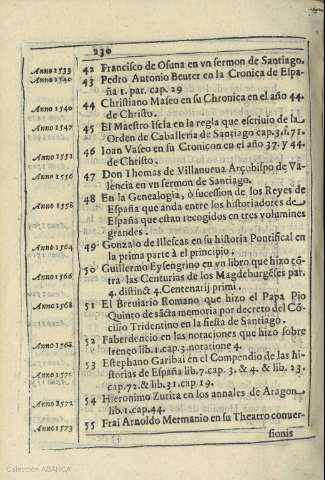 230
Anno 1533 42 Francisco de Osuna en vn sermon de Santiago.
Anno 1540 43 Pedro Antonio Beuter en la Cronica de Espa-
ña 1. par. cap. 29
Anno 1540 44 Christiano Maseo en su Chronica en el año 44.
de Christo.
Anno 1547 45 El Maestro Isla en la regla que escriuio de la
Orden de Caballeria de Santiago cap. 3. §. 71.
Anno 1551 46 Ioan Vaseo en su Cronicon en el año 37. y 44.
de Christo.
Anno 1556 47 Don Thomas de Villanueva Arçobispo de Va-
lencia en vn sermon de Santiago.
Anno 1558 48 En la Genealogia, ò sucession de los Reyes de
España que anda entre los historiadores de
España que estan recogidos en tres volumines
grandes.
Anno 1564 49 Gonzalo de Illescas en su historia Pontifical en
la prima parte à el principio.
Anno 1566 50 Guillermo Eysengrino en vn libro que hizo cõ-
tra las Centurias de los Magdeburgẽses par.
4. distinct 4. Centenarij primi.
Anno 1568 51 El Breviario Romano que hizo el Papa Pio
Quinto de sãcta memoria por decreto del Cõ-
cilio Tridentino en la fiesta de Santiago.
Anno 1568 52 Faberdencio en las notaciones que hizo sobre
Ireneo lib. 1. cap. 3. notatione 4.
Anno 1571 53 Estephano Garibai en el Compendio de las hi-
storias de España lib. 7. cap. 3. & 4. & lib. 23.
cap. 72. & lib. 31. cap. 19.
Anno 1572 54 Hieronimo Zurita en los annales de Aragon
lib. 1. cap. 44.
Anno 1573 55 Frai Arnoldo Mermanio en su Theatro conver-
sionis
Colección ABANCA